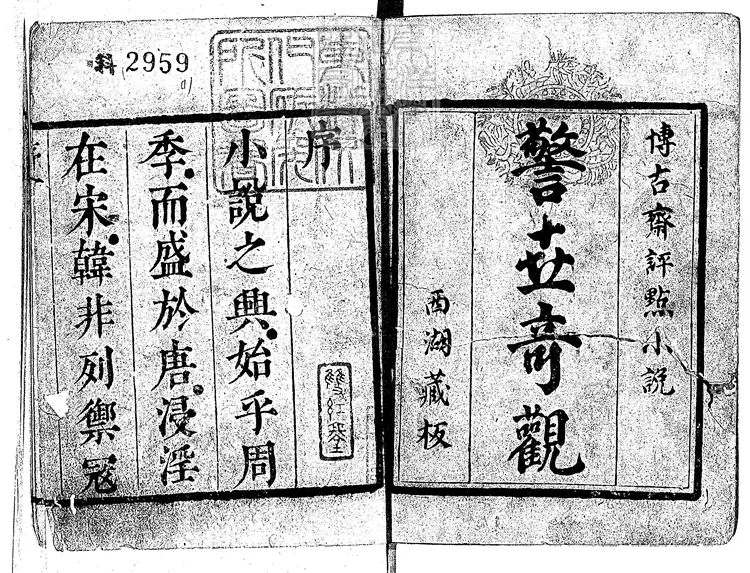 博古齋評點小說
警卋竒觀
西湖藏板
2959
序
雙紅堂
小說之興始乎周
季而盛於唐浸淫
在宋韓非列禦冦